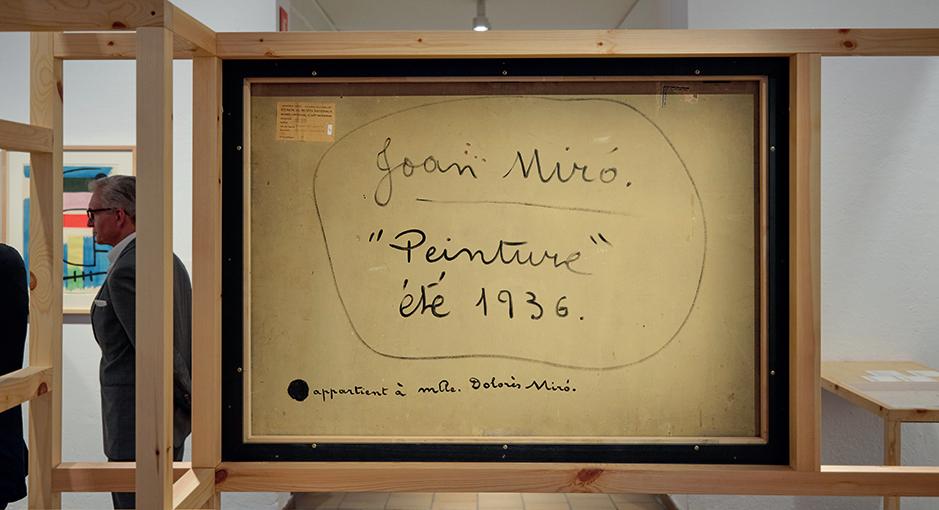 Joan Miró.
"Peinture"
été 1936.
appartient à mlle. Dolorès Miró.